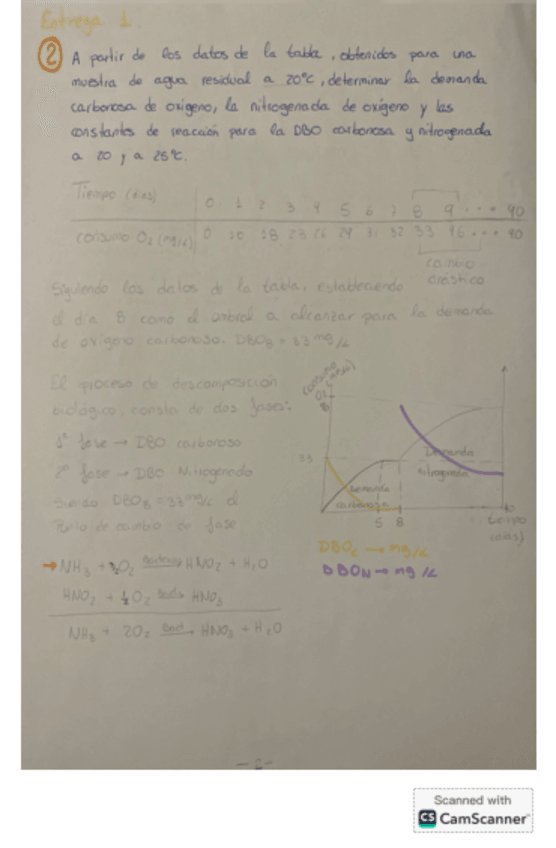 Entrega 1.
② A partir de los datos de la tabla, obtenidos para una
muestra de agua residual a 20°C, determinar la demanda
carbonosa de oxígeno, la nitrogenada de oxígeno y las
constantes de reacción para la DBO carbonosa y nitrogenada
a 20 y a 25°C.
Tiempo (días) 0 1 2 3 4 5 6 7 8 9 ... 90
consumo O₂ (mg/L) 0 10 18 23 26 29 31 32 33 46 ... 90
cambio
drástico
Siguiendo los datos de la tabla, estableciendo
el día 8 como el umbral a alcanzar para la demanda
de oxígeno carbonoso. DBO₈ = 33 mg/L
El proceso de descomposición
biológico, consta de dos fases:
1ª fase → DBO carbonoso
2ª fase → DBO Nitrogenado
Siendo DBO₈ = 33 mg/L el
Punto de cambio de fase
33
Demanda
carbonosa
Demanda
nitrogenada
6 8
tiempo
(días)
DBOc → mg/L
DBON → mg/L
→ NH₃ + O₂ → HNO₂ + H₂O
HNO₂ + ½O₂ → HNO₃
NH₃ + 2O₂ → HNO₃ + H₂O
-2-
Scanned with
CS CamScanner